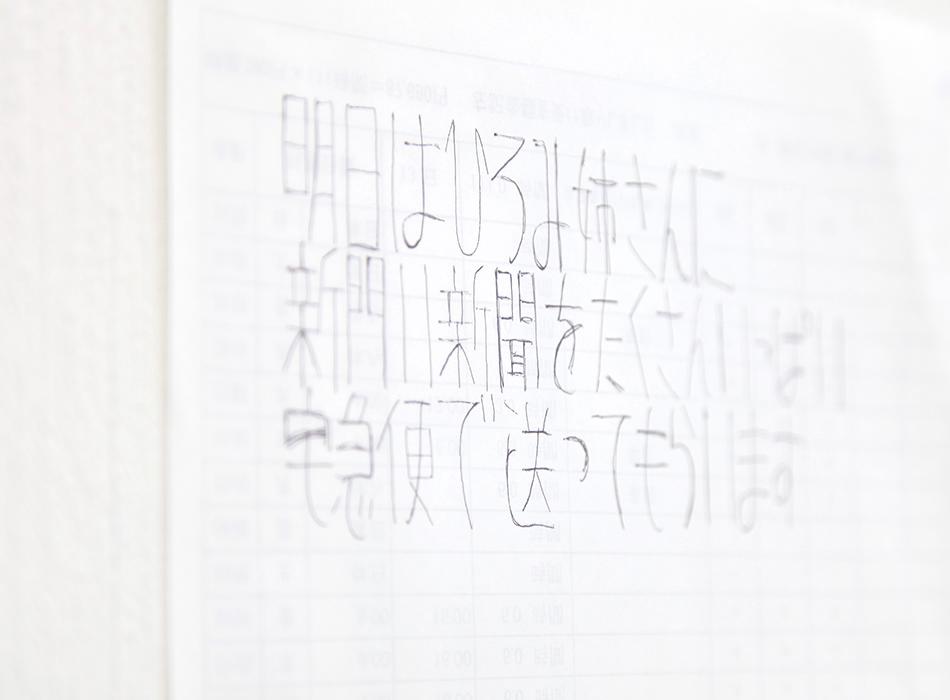 明日はひろみ姉さんに
新門い新聞をたくさんいっぱい
宅急便で送ってもらいます